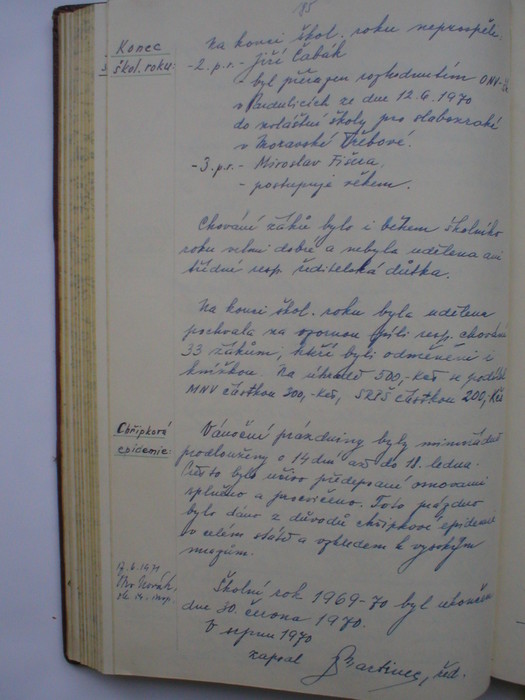 85
Konec
škol. roku:
Na konci škol. roku neprospěli:
-2. p.r.- Jiří Čabák
- byl přeřazen rozhodnutím ONV-
v Pardubicích ze dne 12.6.1970
do zvláštní školy pro slabozraké
v Moravské Třebové.
-3. p.r.- Miroslav Fišna,
- postupuje věkem.
Chování žáků bylo i během školního
roku velmi dobré a nebyla udělena ani
třídní resp. ředitelská důtka.
Na konci škol. roku byla udělena
pochvala za vzornou píli resp. chování
33 žákům, kteří byli odměněni i
knížkou. Na úhradě 500,-Kčs se podílel
MNV částkou 300,-Kčs, SRPŠ částkou 200,-Kčs
Chřipková
epidemie:
Vánoční prázdniny byly mimořádně
prodlouženy o 14 dní až do 18. ledna.
Přesto bylo učivo předepsané osnovami
splněno a procvičeno. Toto prázdno
bylo dáno z důvodů chřipkové epidemie
v celém státě a vzhledem k vysokým
mrazům.
17.6.1971
Novák,
Školní rok 1969-70 byl ukončen
dne 30. června 1970.
V srpnu 1970
zapsal Bartinec, řed.